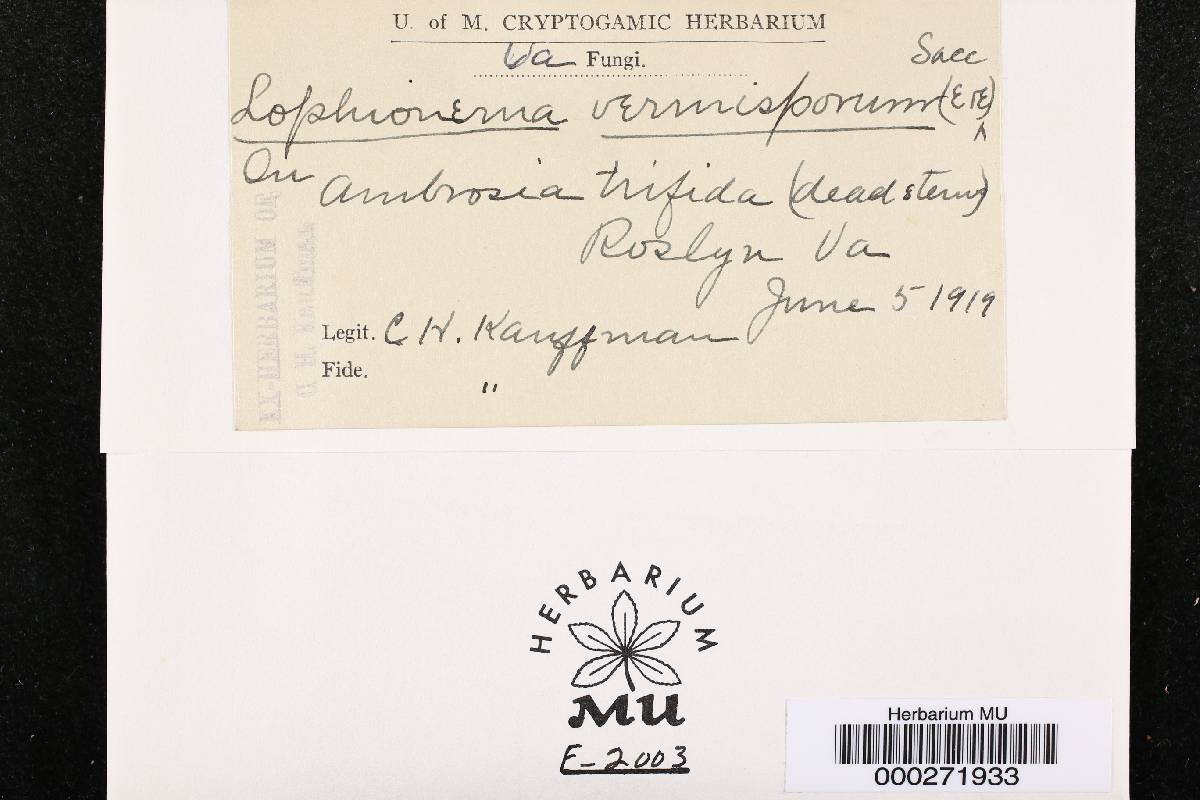 U. of M. CRYPTOGAMIC HERBARIUM
Va Fungi.
Sacc
Lophionema vermisporum (E &E)
^
On Ambrosia trifida (dead stems)
Roslyn Va
June 5 1919
Legit. C H. Kauffman
Fide. "
EX-HERBARIUM OF
C. H. Kauffman
HERBARIUM
MU
E-2003
Herbarium MU
000271933